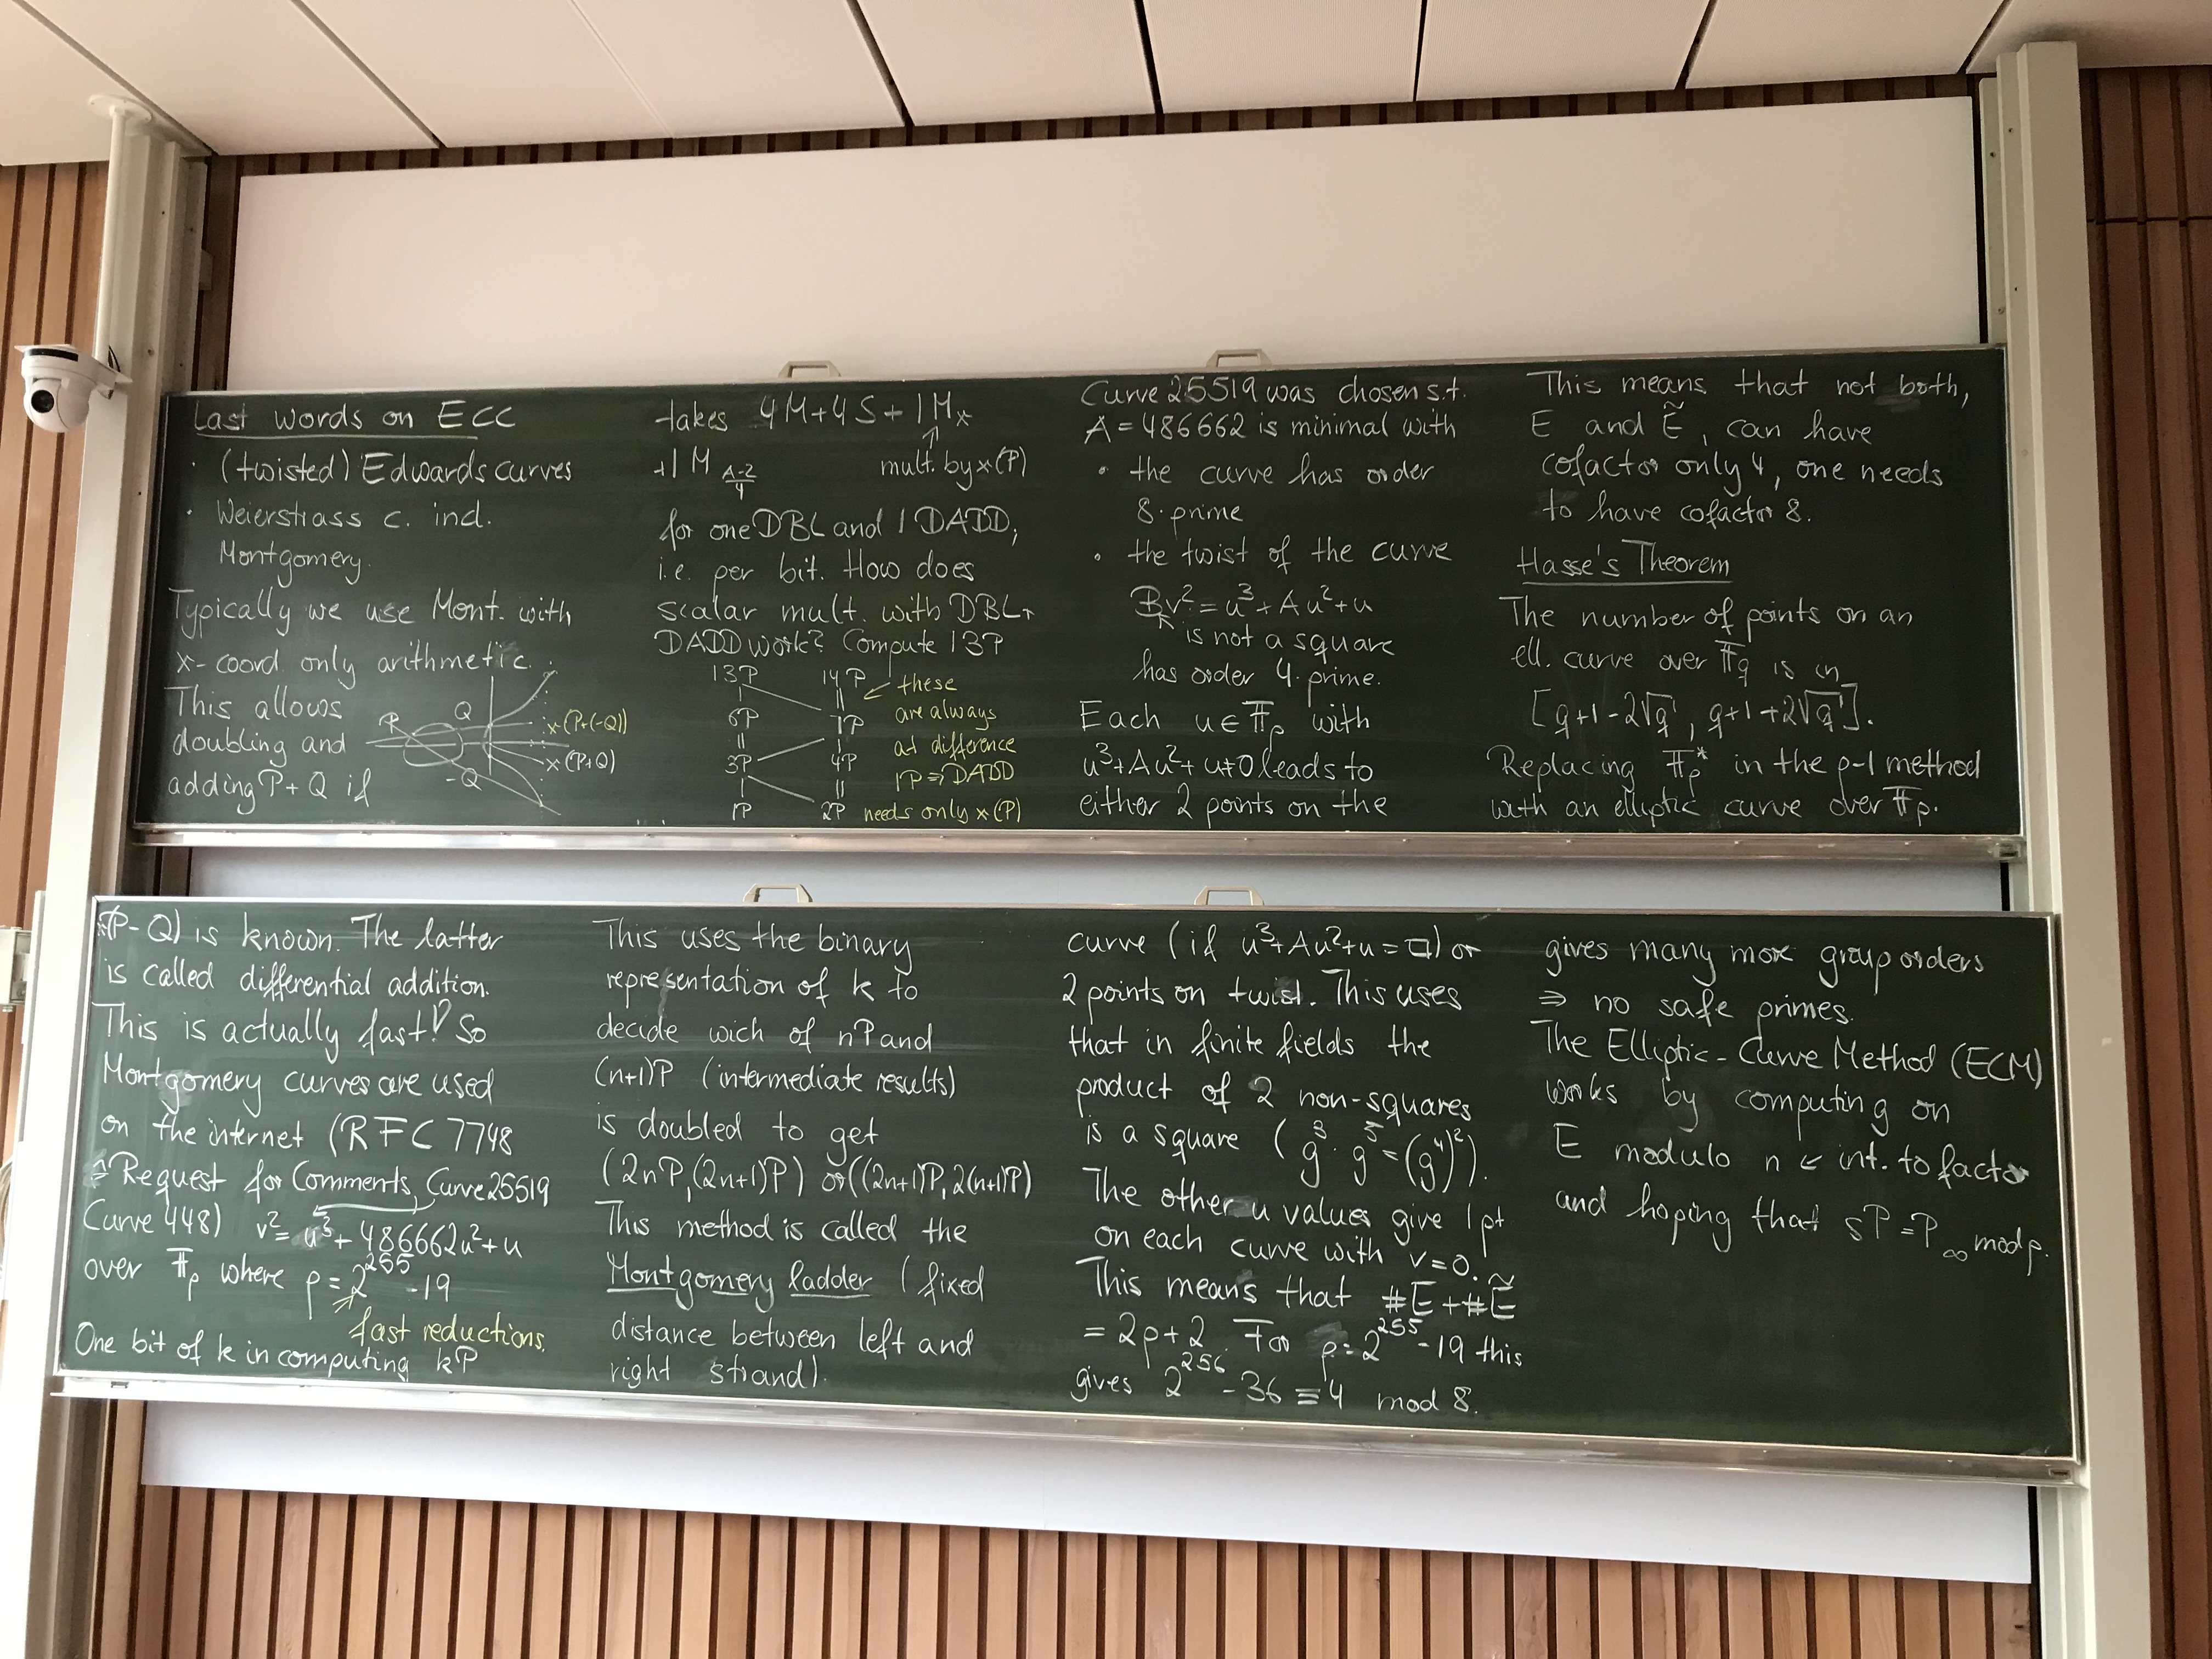 Last words on ECC
· (twisted) Edwards curves
· Weierstrass c. incl.
Montgomery.
Typically we use Mont. with
x-coord. only arithmetic.
This allows
doubling and
adding P+Q if
P
Q
-Q
x(P+(-Q))
x(P+Q)
(P-Q) is known. The latter
is called differential addition.
This is actually fast! So
Montgomery curves are used
on the internet (RFC 7748
≙ Request for Comments, Curve 25519
Curve 448) v² = u³ + 486662u² + u
over 𝔽p where p = 2^255 - 19
fast reductions.
One bit of k in computing kP
takes 4M+4S+1Mx
mult. by x(P)
+1M A-2/4
for one DBL and 1 DADD,
i.e. per bit. How does
scalar mult. with DBL +
DADD work? Compute 13P
13P 14P
6P 7P
3P 4P
1P 2P
these
are always
at difference
1P ⇒ DADD
needs only x(P)
This uses the binary
representation of k to
decide wich of nP and
(n+1)P (intermediate results)
is doubled to get
(2nP, (2n+1)P) or ((2n+1)P, 2(n+1)P)
This method is called the
Montgomery ladder (fixed
distance between left and
right strand).
Curve 25519 was chosen s.t.
A = 486662 is minimal with
• the curve has order
8·prime
• the twist of the curve
Bv² = u³ + Au² + u
is not a square
has order 4·prime.
Each u ∈ 𝔽p with
u³+Au²+u≠0 leads to
either 2 points on the
curve (if u³+Au²+u = □) or
2 points on twist. This uses
that in finite fields the
product of 2 non-squares
is a square (g³·g⁵=(g⁴)²).
The other u values give 1 pt
on each curve with v=0.
This means that #E + #Ẽ
= 2p+2. For p = 2^255 - 19 this
gives 2^256 - 36 ≡ 4 mod 8.
This means that not both,
E and Ẽ, can have
cofactor only 4, one needs
to have cofactor 8.
Hasse's Theorem
The number of points on an
ell. curve over 𝔽q is in
[q+1-2√q, q+1+2√q].
Replacing 𝔽p* in the p-1 method
with an elliptic curve over 𝔽p.
gives many more group orders
⇒ no safe primes.
The Elliptic-Curve Method (ECM)
works by computing on
E modulo n ← int. to factor
and hoping that sP = P∞ mod p.